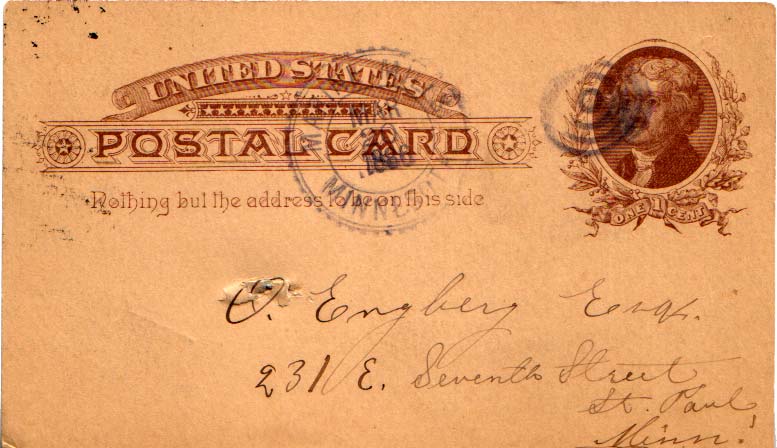 UNITED STATES
POSTAL CARD
Nothing but the address to be on this side
ONE 1 CENT
MAR
MINNESOTA
O. Engberg Esqr.
231 E. Seventh Street
St. Paul
Minn.